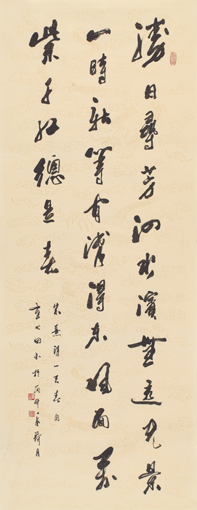 勝日尋芳泗水濱無邊光景
一時新等閒識得東風面萬
紫千紅總是春
朱熹詩一首春日